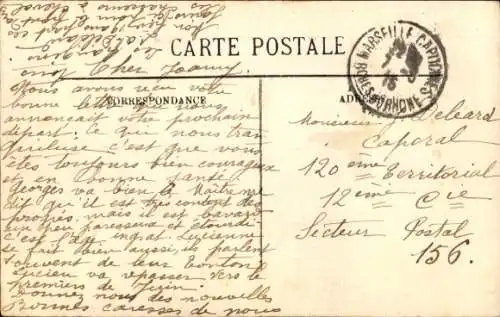 CARTE POSTALE
MARSEILLE CAPUCINES
BCHES DU RHONE
CORRESPONDANCE
ADRESSE
Cher Jeanny
Nous avons reçu votre
bonne lettre nous
annonçait votre prochain
départ. Ce qui nous tran
quilise c'est que vous
êtes toujours bien courageux
et en bonne santé
Georges va bien le Maître me
dit qu'il est très content des
progrès, mais il est bavard
un peu paresseux et étourdi
c'est l'âge ingrat. Lucienne
se fait bien aussi, ils parlent
souvent de leur tonton
Lucien va repasser vers le
premiers de Juin.
Donnez nous des nouvelles
Bonnes caresses de nous
Monsieur Deleard
Caporal
120 eme Territorial
12 ième Cie
Secteur Postal
156.